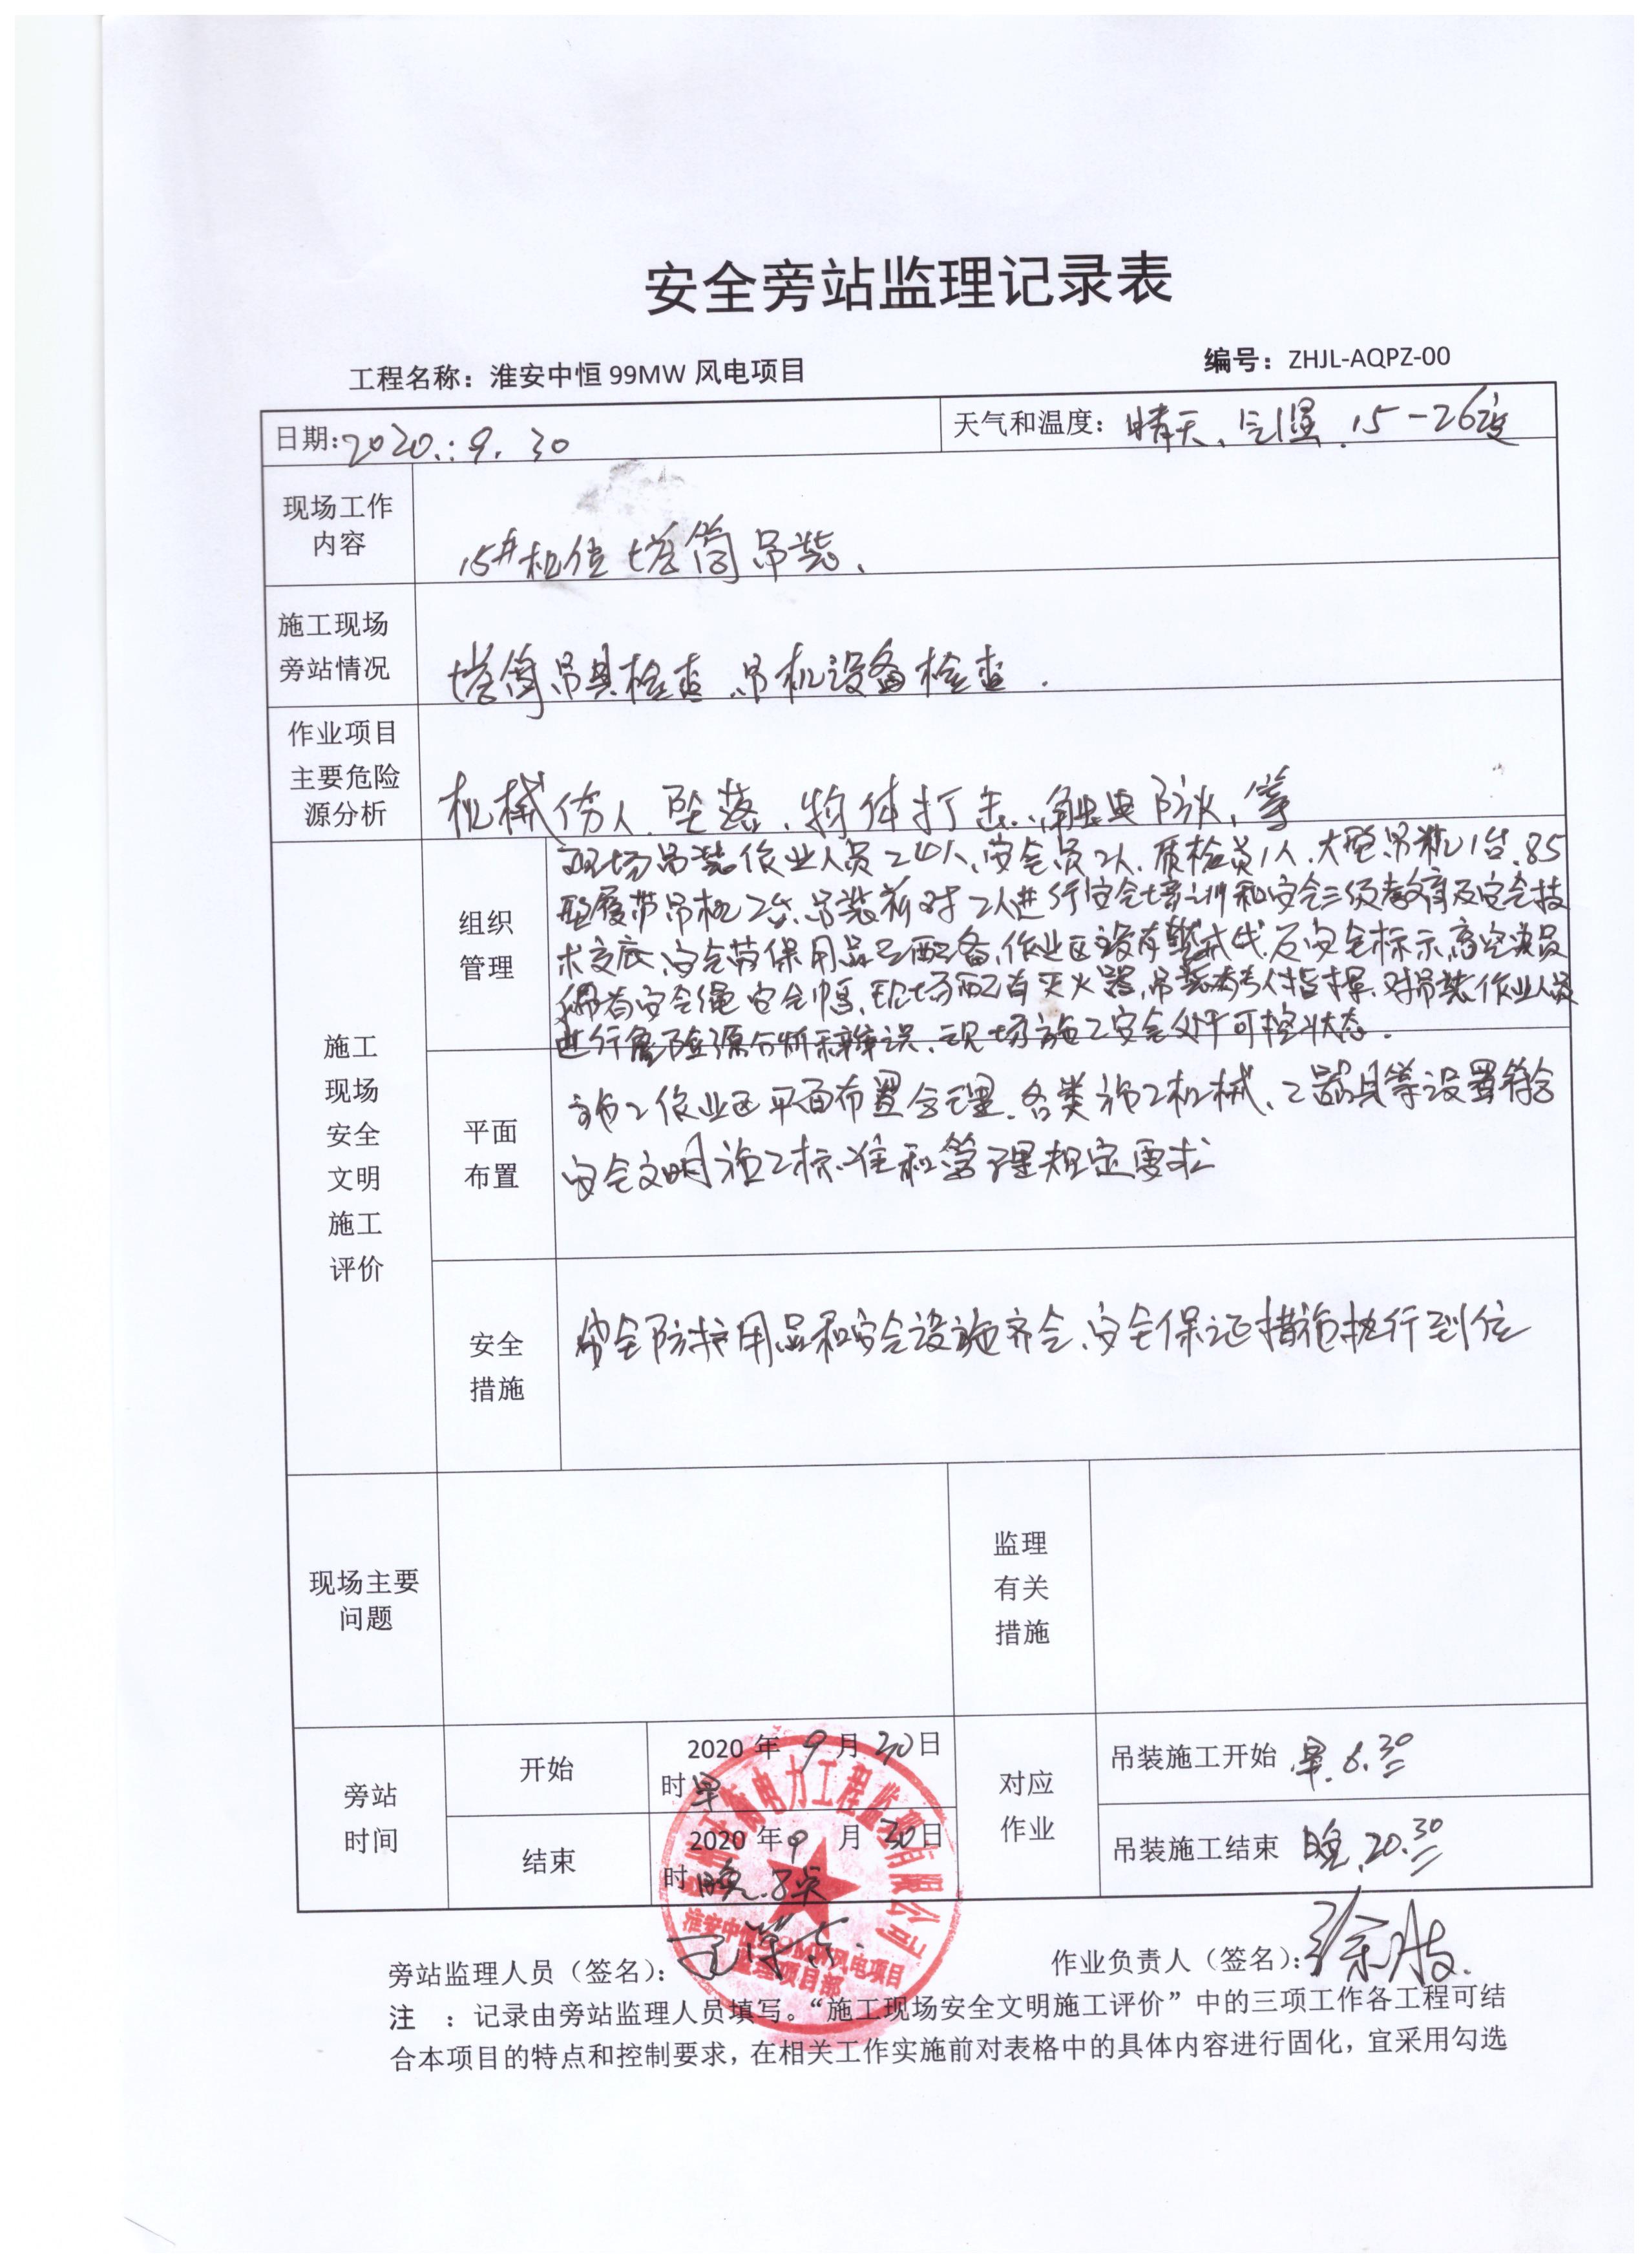 安全旁站监理记录表
工程名称：淮安中恒 99MW 风电项目
编号：ZHJL-AQPZ-00
日期：2020.：9. 30
天气和温度：晴天、气温.15-26度
现场工作
内容
15#机位塔筒吊装、
施工现场
旁站情况
塔筒吊具检查、吊机设备检查.
作业项目
主要危险
源分析
机械伤人、坠落、物体打击、触电防火、等
施工
现场
安全
文明
施工
评价
组织
管理
现场吊装作业人员20人、安全员2人、质检员1人、大型吊机1台、85
型履带吊机2台、吊装前对工人进行安全培训和安全三级教育及安全技
术交底、安全劳保用品已配备、作业区设有警戒线、及安全标示、高空人员
佩有安全绳、安全帽、现场配有灭火器、吊装有专人指挥、对吊装作业人员
进行危险源分析和辨识、现场施工安全处于可控状态.
平面
布置
施工作业区平面布置合理、各类施工机械、工器具等设置符合
安全文明施工标准和管理规定要求
安全
措施
安全防护用品和安全设施齐全、安全保证措施执行到位
现场主要
问题
监理
有关
措施
旁站
时间
开始
2020 年 9 月 30 日
时早
结束
2020 年 9 月 30 日
时 晚.8点
对应
作业
吊装施工开始 早.6.30
吊装施工结束 晚.20.30
电力工程监理有限公司
淮安中恒99MW风电项目
监理项目部
旁站监理人员（签名）：
作业负责人（签名）：
注 ：记录由旁站监理人员填写。“施工现场安全文明施工评价”中的三项工作各工程可结
合本项目的特点和控制要求，在相关工作实施前对表格中的具体内容进行固化，宜采用勾选